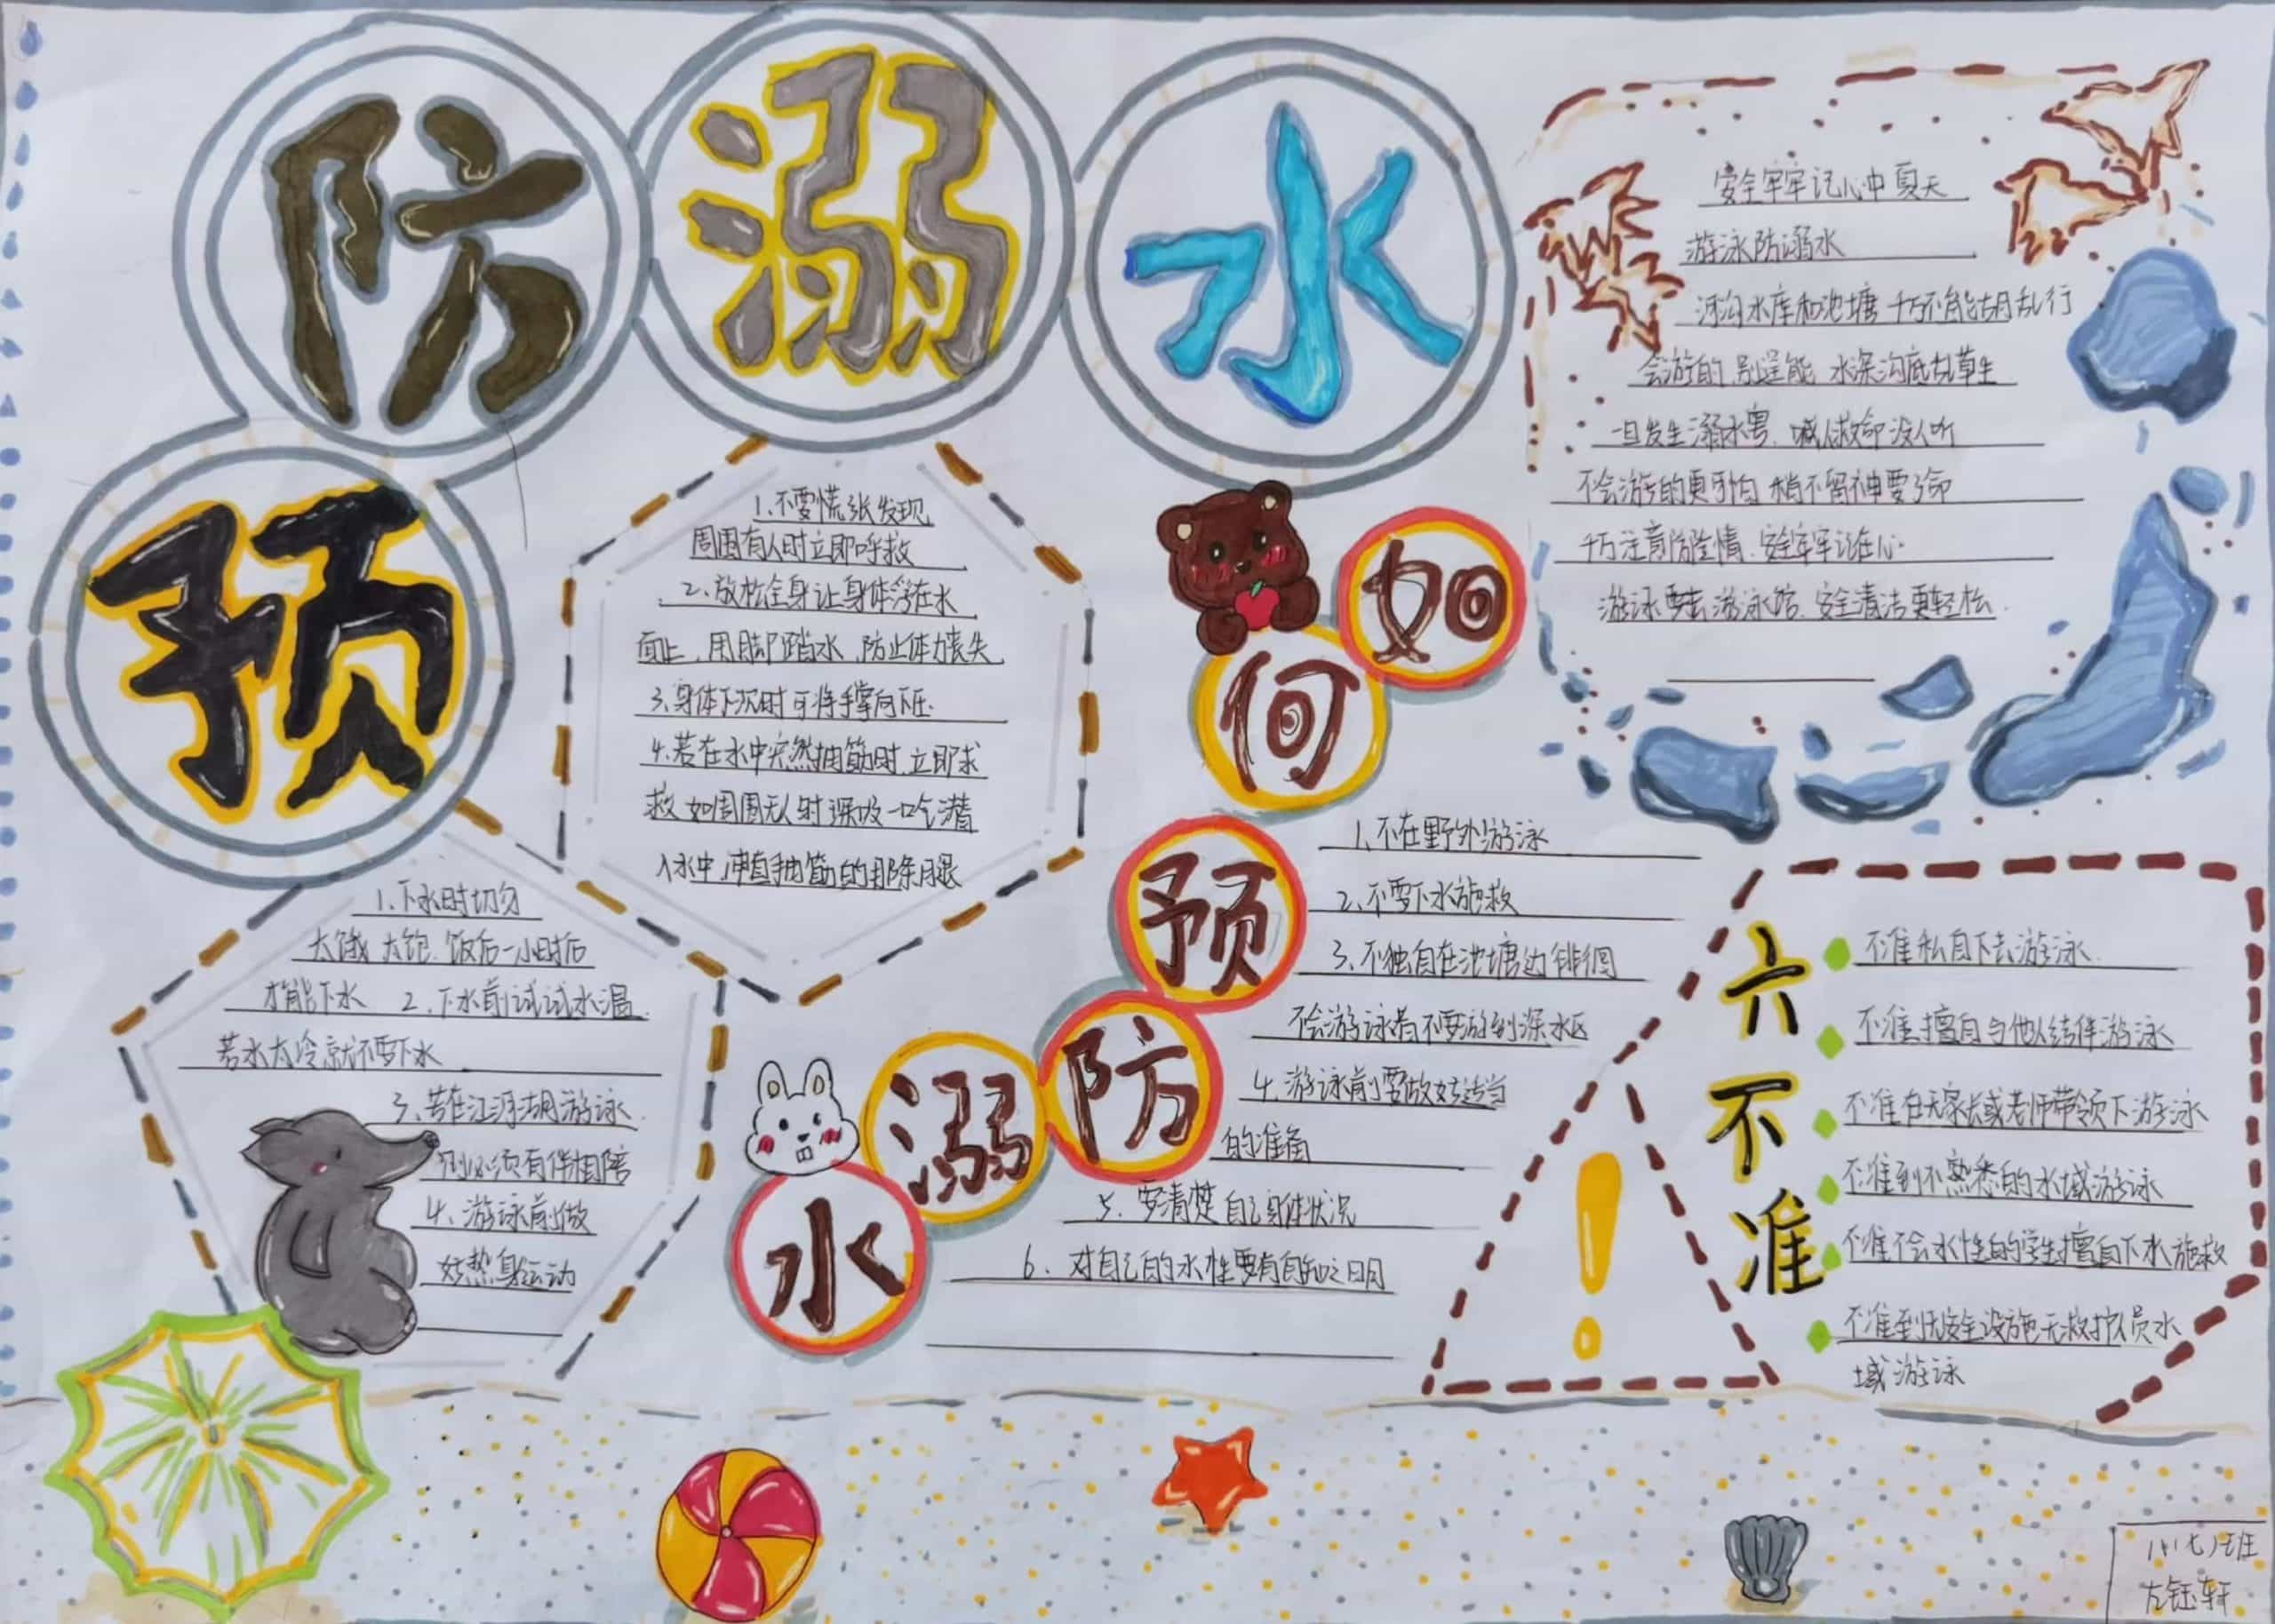 预防溺水
安全牢牢记心中夏天
游泳防溺水
河沟水库和池塘 千万不能胡乱行
会游的 别逞能 水深沟底乱草生
一旦发生溺水 喊人救命没人听
不会游的更可怕 稍不留神要了命
千万注意防险情.安全牢牢记在心.
游泳要去游泳馆.安全清洁更轻松.
1.不要慌张发现
周围有人时立即呼救
2.放松全身让身体浮在水
面上.用脚踏水.防止体力丧失
3.身体下沉时可将手掌向下压.
4.若在水中突然抽筋时.立即求
救 如周围无人时深吸一口气潜
入水中,冲直抽筋的那条腿
1.下水时切勿
太饿 太饱.饭后一小时后
才能下水 2.下水前试试水温.
若水太冷就不要下水
3、若在江河湖游泳.
则必须有伴相陪
4、游泳前做
好热身运动
如何预防溺水
1、不在野外游泳
2、不要下水施救
3、不独自在池塘边徘徊
不会游泳者不要游到深水区
4.游泳前要做好适当
的准备
5.要清楚自己身体状况
6、对自己的水性要有自知之明
六不准
不准私自下去游泳.
不准擅自与他人结伴游泳
不准在无家长或老师带领下游泳
不准到不熟悉的水域游泳
不准不会水性的学生擅自下水施救
不准到无安全设施无救护人员水
域游泳
!
八(七)班
左钰轩